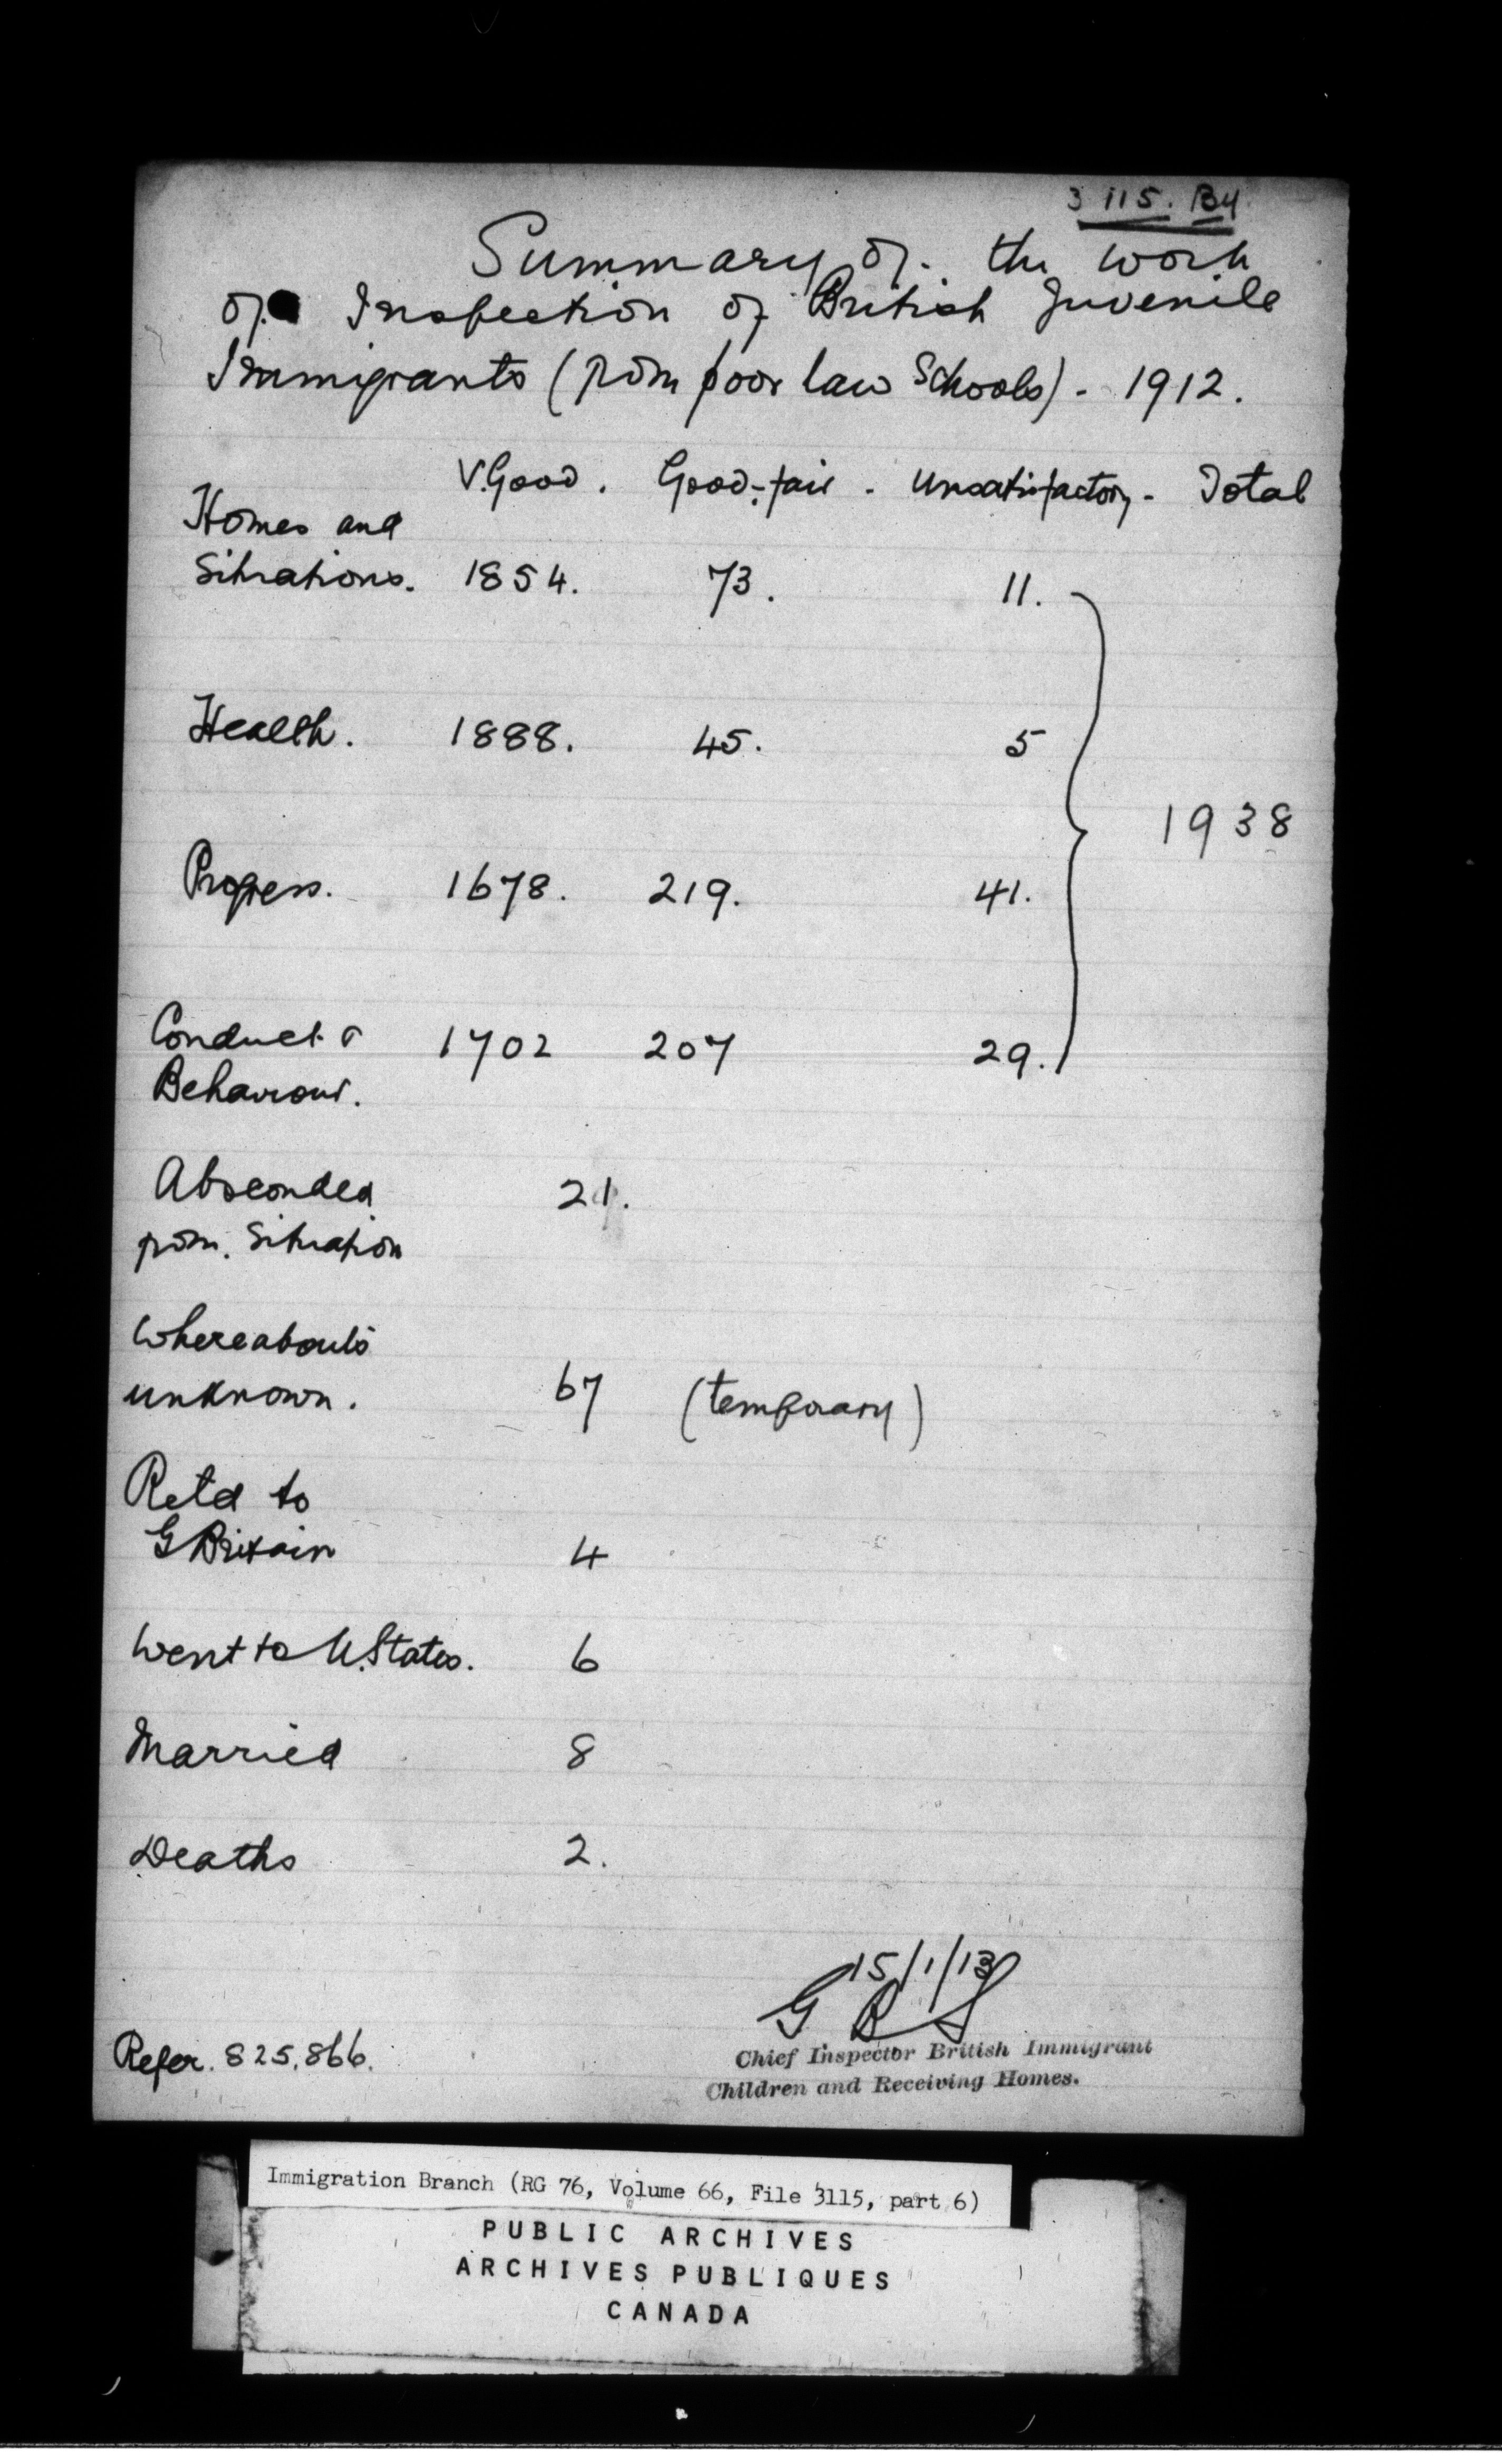 3115. B4
Summary of the work
of Inspection of British Juvenile
Immigrants (from poor law Schools) - 1912.
V.Good. Good-fair - Unsatisfactory - Total
Homes and
Situations. 1854. 73. 11.
Health. 1888. 45. 5
1938
Progress. 1678. 219. 41.
Conduct & 1702 207 29.
Behaviour.
Absconded 21.
from Situation
Whereabouts
unknown. 67 (temporary)
Retd to
G Britain 4
Went to U.States. 6
Married 8
Deaths 2.
15/1/13
G B S
Refer. 825,866.
Chief Inspector British Immigrant
Children and Receiving Homes.
Immigration Branch (RG 76, Volume 66, File 3115, part 6)
PUBLIC ARCHIVES
ARCHIVES PUBLIQUES
CANADA